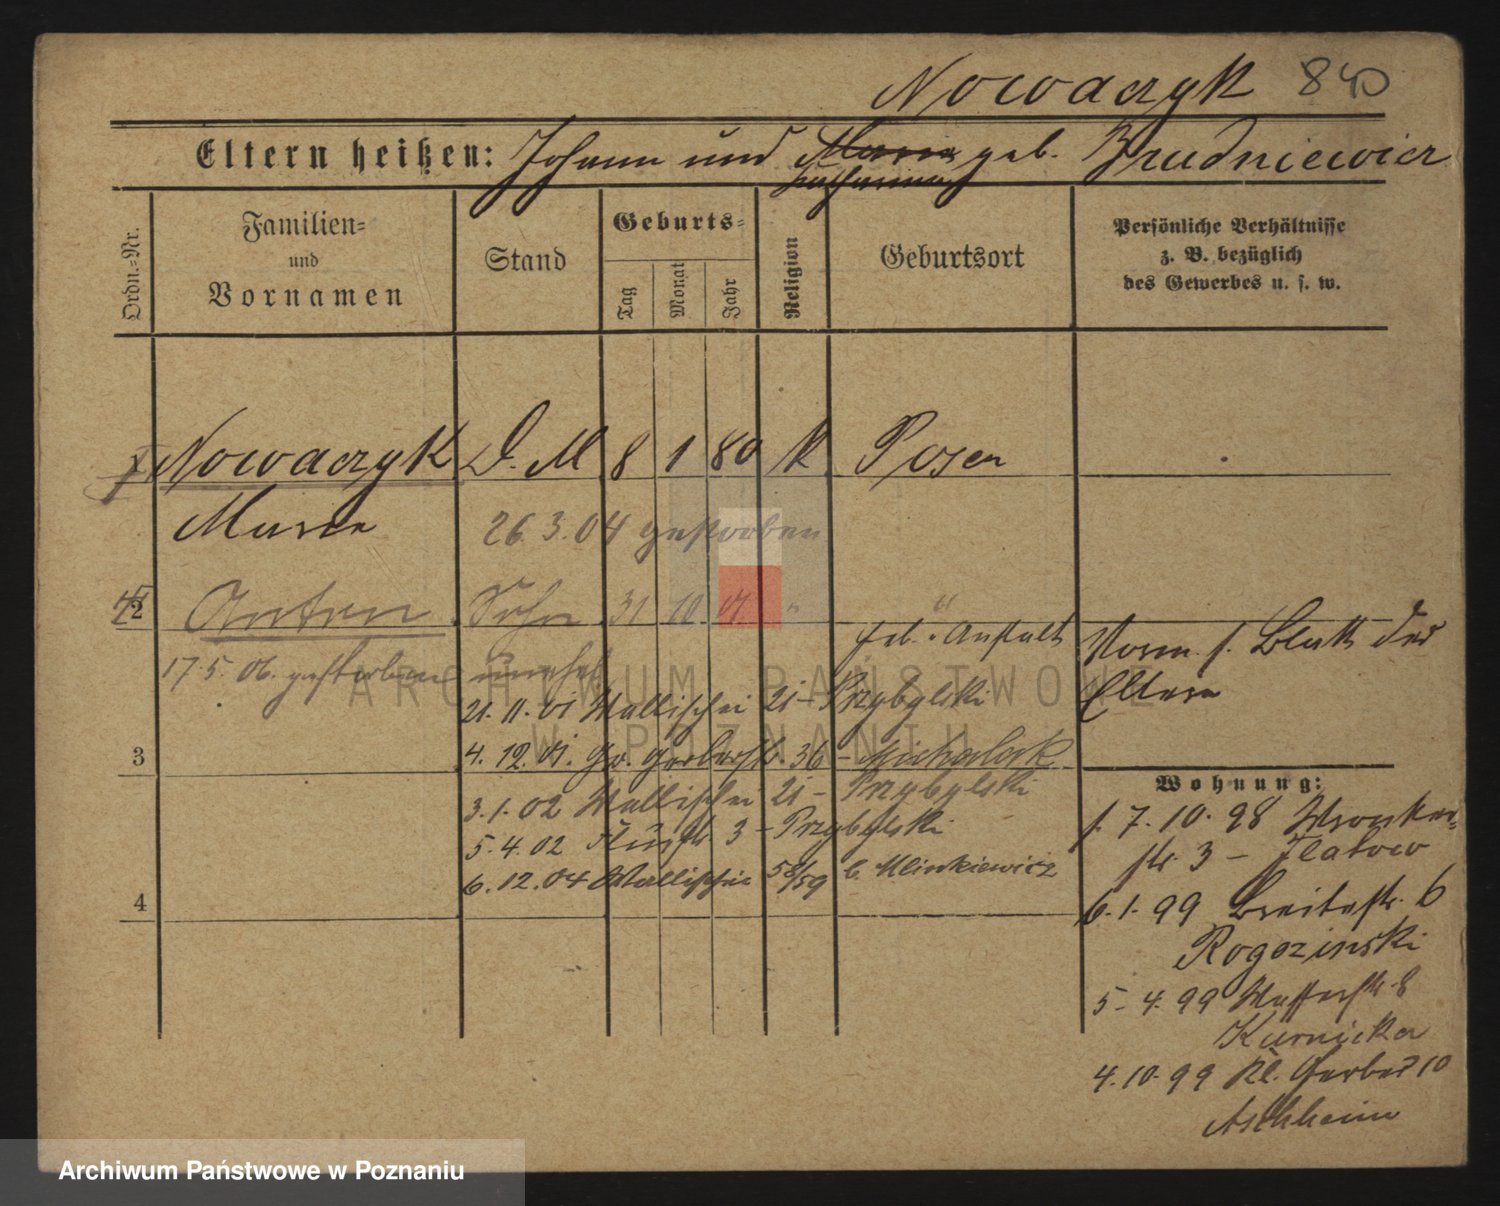 Nowaczyk 840
Eltern heißen: Johann und Maria geb. Brudniewicz
Catharina
Ordn.-Nr.
Familien-
und
Vornamen
Stand
Geburts-
Tag
Monat
Jahr
Religion
Geburtsort
Persönliche Verhältnisse
z. B. bezüglich
des Gewerbes u. s. w.
Nowaczyk D. M 8 1 80 k Posen
Maria 26.3.04 gestorben
2 Anton Sohn 31 10 01 " "
geb. Anstalt
17.5.06. gestorben unehel.
Vorm. s. Blatt der
Eltern
21.11.01 Wallischei 21 - Przybylski
3 4.12.01. Gr. Gerberstr. 36 - Michalak
3.1.02 Wallischei 21 - Przybylski
5.4.02 3 - Przybylski
6.12.04 Wallischei 58/59 b. Mlinkiewicz
4
Wohnung:
7.10.98 Wronker-
str. 3 - Flatow
6.1.99 Breitestr. 6
Rogozinski
5.4.99 Wasserstr. 8
Kurnicka
4.10.99 Kl. Gerber 10
Aschheim
ARCHIWUM PAŃSTWOWE
W POZNANIU
Archiwum Państwowe w Poznaniu